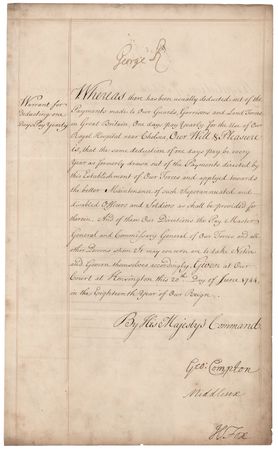 George R
Warrant for
Deducting one
Days Pay Yearly
Whereas there has been usually deducted out of the
Payments made to Our Guards, Garrisons and Land Forces
in Great Britain, One days pay Yearly for the Use of Our
Royal Hospital near Chelsea, Our Will & Pleasure
is, that the same deduction of one days pay be every
Year as formerly drawn out of the Payments directed by
this Establishment of Our Forces and applyed towards
the better Maintenance of such Superannuated and
disabled Officers and Soldiers as shall be provided for
therein. And of these Our Directions the Pay Master
General and Commissary General of Our Forces and all
other Persons whom It may concern are to take Notice
and Govern themselves accordingly. Given at Our
Court at Kensington this 20th Day of June 1744.
in the Eighteenth Year of Our Reign.
By His Majestys Command
Geo: Compton
Middlesex
H Fox